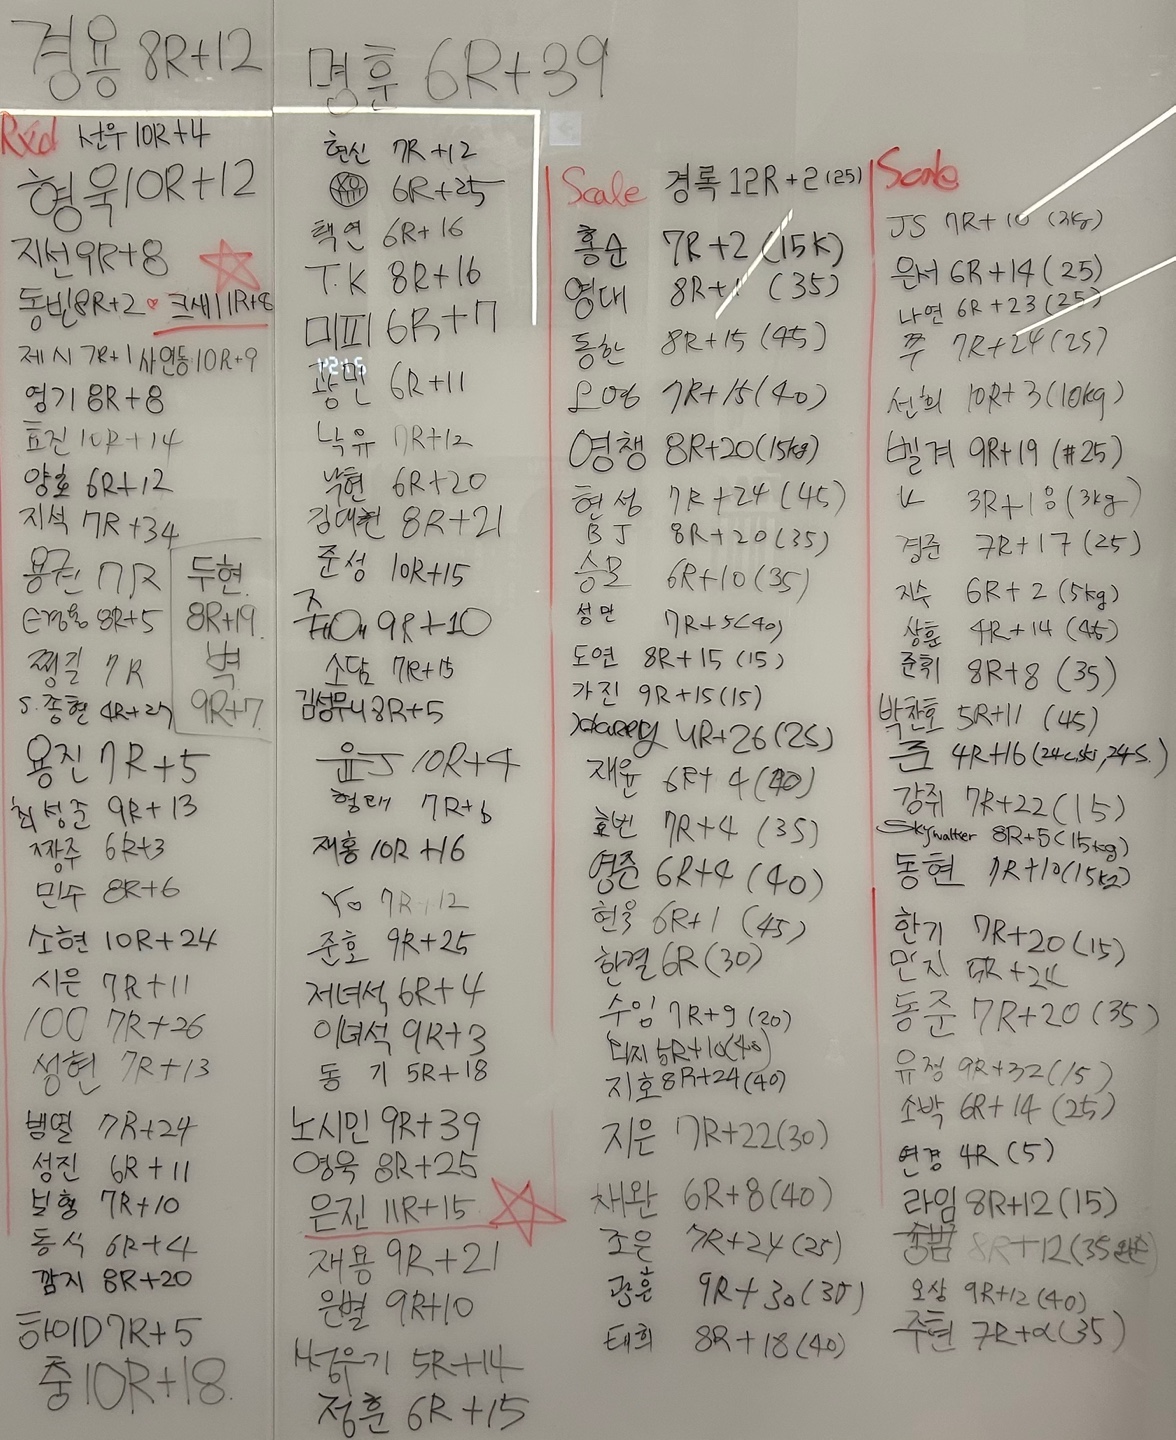 경용 8R+12
명훈 6R+39
Rxd 선우 10R+4
형욱 10R+12
지선 9R+8
동빈 8R+2 크새 11R+8
제시 7R+1 사연동 10R+9
영기 8R+8
효진 10R+14
양호 6R+12
지석 7R+34
용권 7R
두현
8R+5
8R+19
찡길 7R
벽
S.종현 4R+27
9R+7
용진 7R+5
최성준 9R+13
짱주 6R+3
민수 8R+6
소현 10R+24
시은 7R+11
100 7R+26
성현 7R+13
병열 7R+24
성진 6R+11
보형 7R+10
동식 6R+4
깜지 8R+20
하이D 7R+5
충 10R+18
현신 7R+12
6R+25
택연 6R+16
T.K 8R+16
미피 6R+7
광민 6R+11
낙유 7R+12
낙현 6R+20
김대현 8R+21
준성 10R+15
9R+10
소담 7R+15
8R+5
윤J 10R+4
형태 7R+6
재홍 10R+16
Yo 7R+12
준호 9R+25
저녀석 6R+4
이녀석 9R+3
동기 5R+18
노시민 9R+39
영욱 8R+25
은진 11R+15
재용 9R+21
은별 9R+10
5R+14
정훈 6R+15
Scale 경록 12R+2 (25)
홍순 7R+2 (15K)
영대 8R+1 (35)
동한 8R+15 (45)
오영 7R+15 (40)
영챙 8R+20 (15kg)
현성 7R+24 (45)
BJ 8R+20 (35)
승모 6R+10 (35)
성만 7R+5 (40)
도연 8R+15 (15)
가진 9R+15 (15)
Harry 4R+26 (25)
재윤 6R+4 (40)
효빈 7R+4 (35)
영준 6R+4 (40)
현웅 6R+1 (45)
한결 6R (30)
수임 7R+9 (20)
5R+10 (40)
지호 8R+24 (40)
지은 7R+22 (30)
채완 6R+8 (40)
조은 7R+24 (25)
광훈 9R+30 (35)
태희 8R+18 (40)
Scale
JS 7R+10 (3kg)
은서 6R+14 (25)
나연 6R+23 (25)
쭈 7R+24 (25)
선희 10R+3 (10kg)
벨겨 9R+19 (#25)
3R+18 (3kg)
경준 7R+17 (25)
지수 6R+2 (5kg)
상훈 4R+14 (45)
준휘 8R+8 (35)
박찬호 5R+11 (45)
준 4R+16
강쥐 7R+22 (15)
Skywalker 8R+5 (15kg)
동현 7R+10 (15kg)
한기 7R+20 (15)
민지 5R+24
동준 7R+20 (35)
유정 9R+32 (15)
소박 6R+14 (25)
연경 4R (5)
라임 8R+12 (15)
8R+12 (35
오상 9R+12 (40)
주현 7R+α (35)